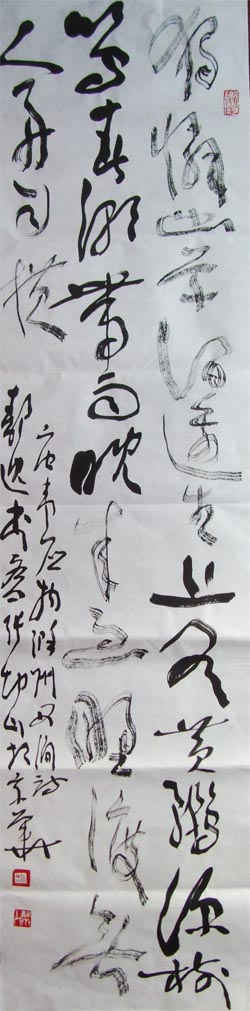 獨憐幽草澗邊生上有黃鸝深樹
鳴春潮帶雨晚來急野渡無
人舟自横
唐韋應物滁州西澗詩
於京華